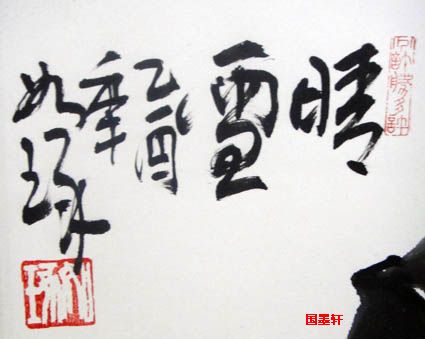 晴雪
乙酉
年
如琢
国墨轩